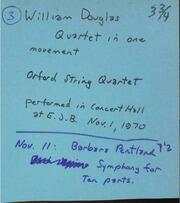 ③ William Douglas 3¾
Quartet in one
movement
Orford String Quartet
performed in Concert Hall
at E.J.B. Nov. 1, 1970
Nov. 11: Barbara Pentland 7½
Symphony for
Ten parts.